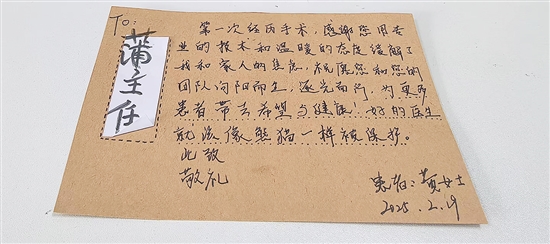 To:
蒲主任
第一次经历手术,感谢您用专
业的技术和温暖的态度缓解了
我和家人的焦虑,祝愿您和您的
团队向阳而生,逐光而行,为更多
患者带去希望与健康!好的医生
就该像熊猫一样被保护。
此致
敬礼
患者:黄女士
2025.2.19